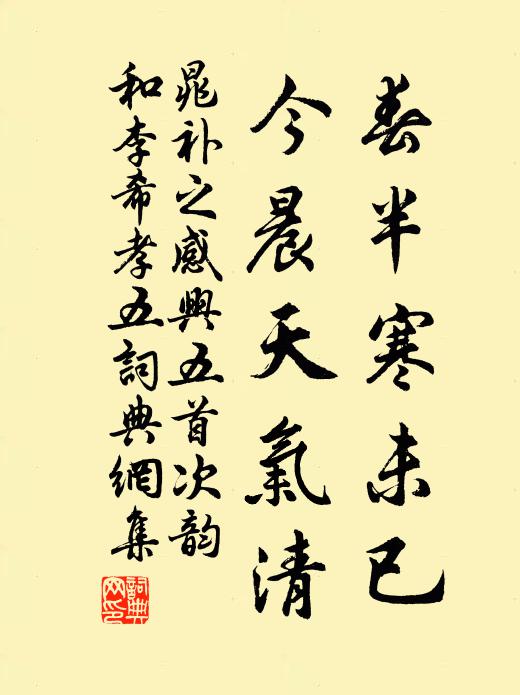 春半寒未已
今晨天氣清
晁補之感興五首次韵
和李希孝五詞典網集
詞典網印